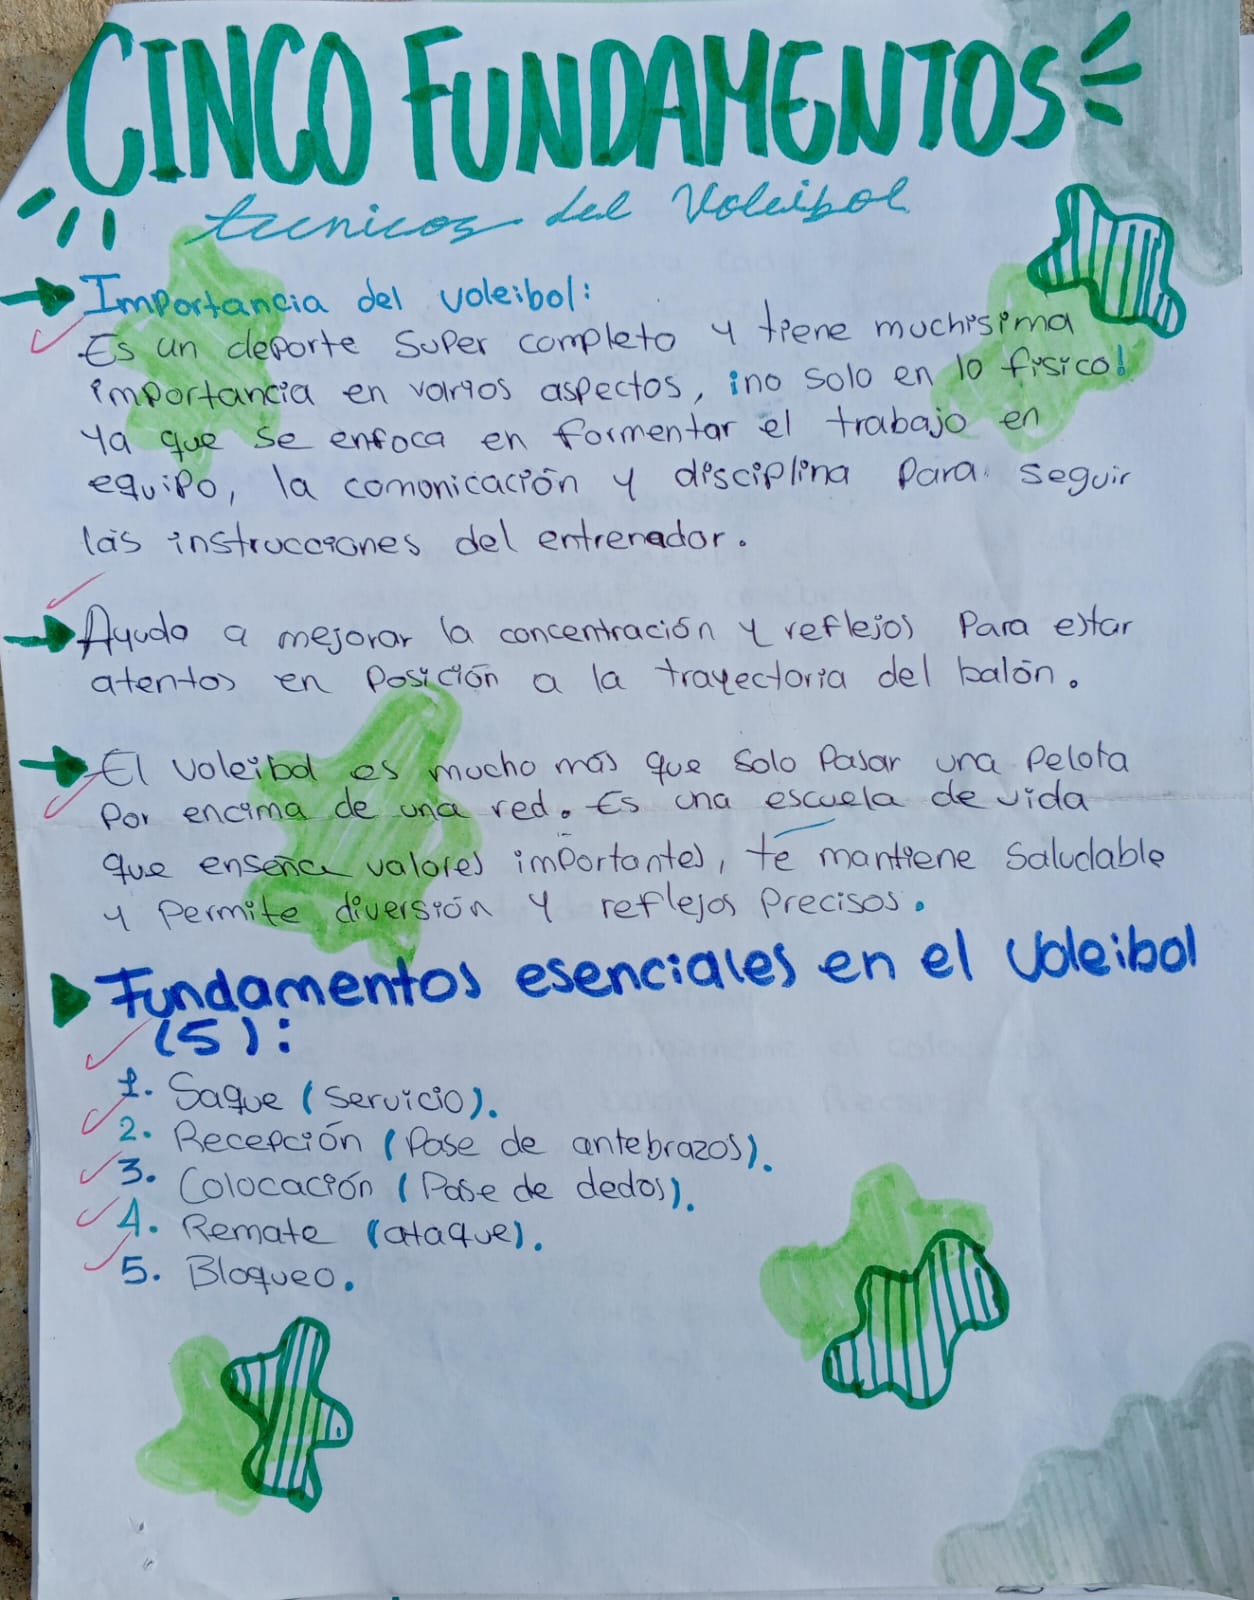 CINCO FUNDAMENTOS
tecnicos del Voleibol
Importancia del voleibol:
Es un deporte super completo y tiene muchisima
importancia en varios aspectos, ¡no solo en lo fisico!
Ya que se enfoca en formentar el trabajo en
equipo, la comonicación y disciplina para seguir
las instrucciones del entrenador.
Ayuda a mejorar la concentración y reflejos Para estar
atentos en Posición a la trayectoria del balón.
El voleibol es mucho más que solo Pasar una Pelota
Por encima de una red. Es una escuela de vida
que enseña valores importantes, te mantiene saludable
y Permite diversión y reflejos Precisos.
Fundamentos esenciales en el Voleibol
(5):
1. Saque (Servicio).
2. Recepción (Pase de antebrazos).
3. Colocación (Pase de dedos).
4. Remate (ataque).
5. Bloqueo.